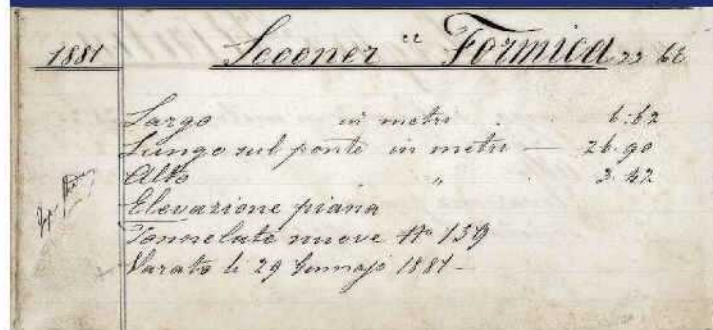 1881 Scooner " Formica " 62
Largo in metri 6.62
Lungo sul ponte in metri — 26.90
Alto " 3.42
Elevazione piana
Tonnelate nuove No 139
Varato li 29 Gennajo 1881 -